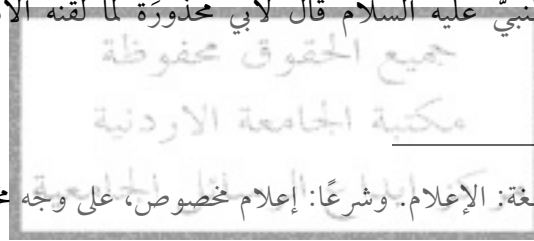 لنبيّ عليه السلام قال لأبي محذورَة لما لقنه
جميع الحقوق محفوظة
مكتبة الجامعة الاردنية
غة: الإعلام. وشرعًا: إعلام مخصوص، على وجه